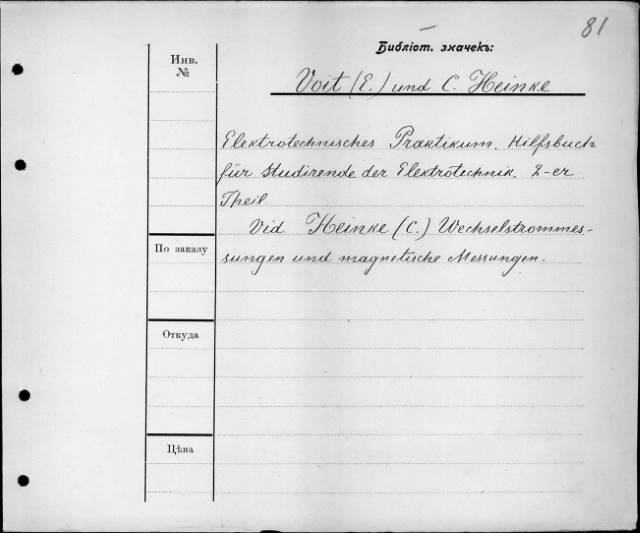 81
Библіот. значекъ:
Инв.
№
Voit (E.) und C. Heinke
Elektrotechnisches Praktikum. Hilfsbuch
für Studirende der Elektrotechnik. 2-er
Theil
Vid Heinke (C.) Wechselstrommes-
sungen und magnetische Messungen.
По заказу
Откуда
Цѣна